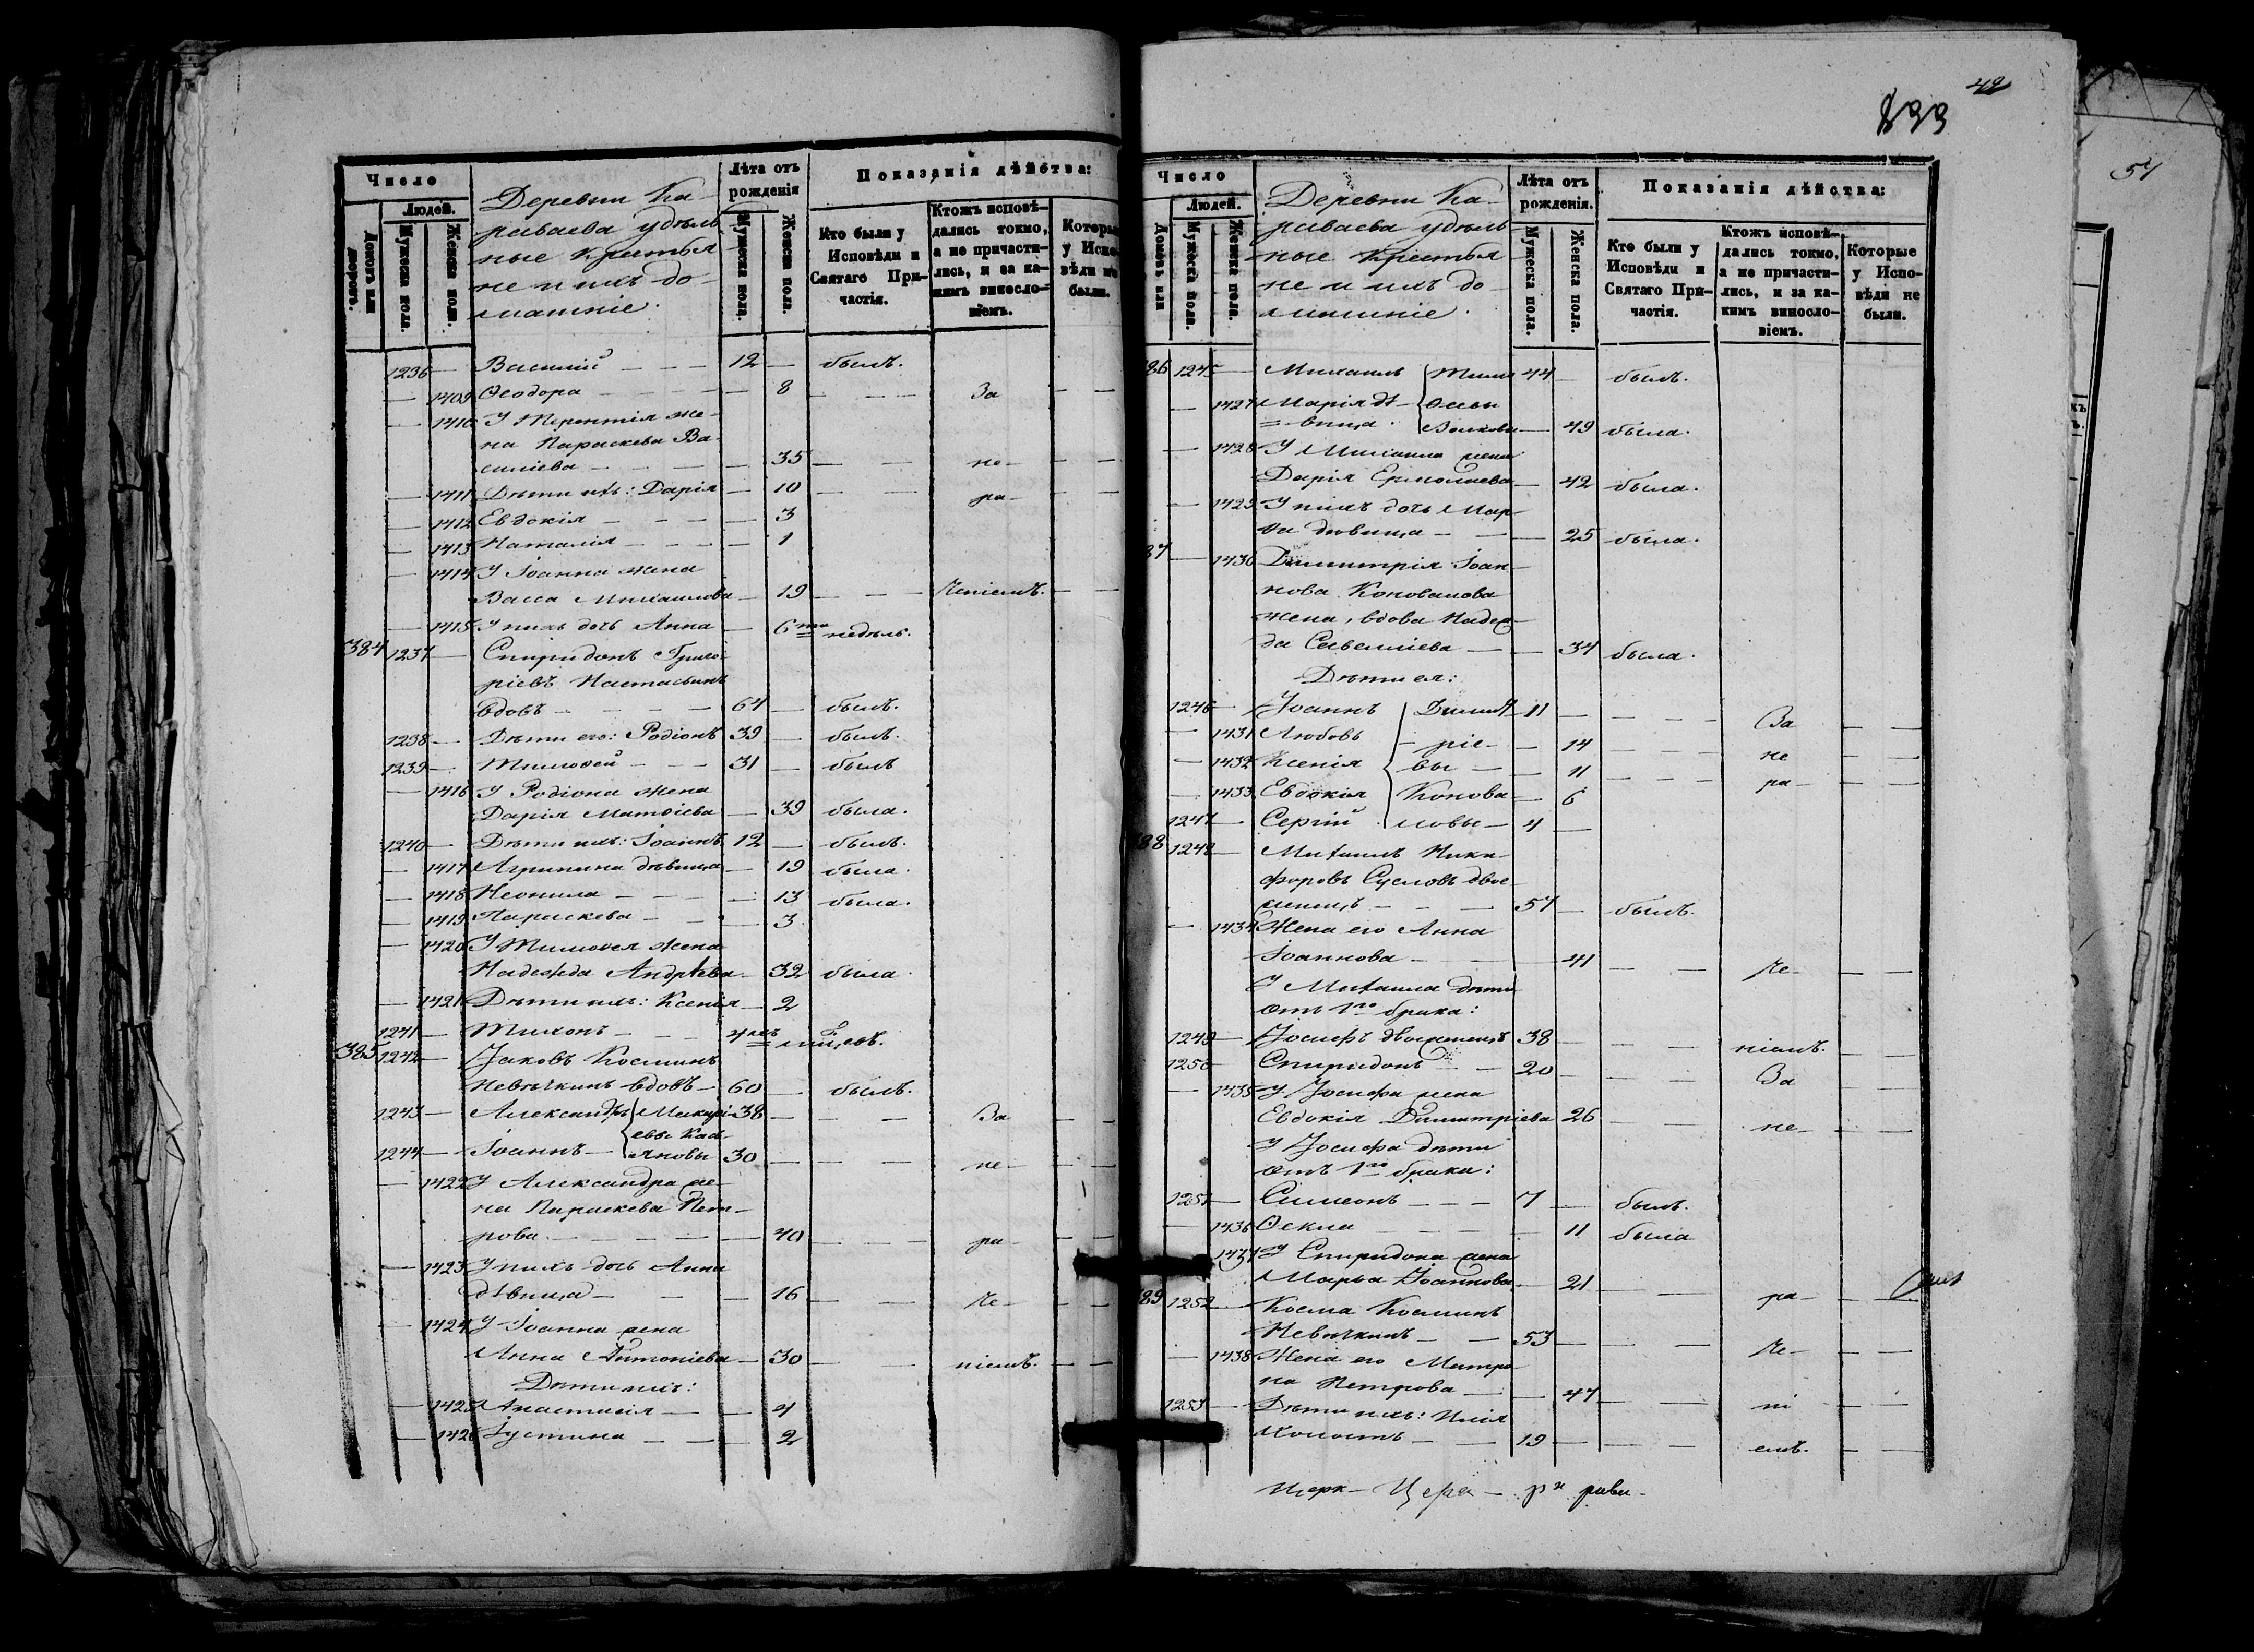 Число
Людей.
Домовъ или дворовъ.
Мужеска пола.
Женска пола.
Деревни Ка-
риваева удѣль-
ные крестья
не и ихъ до-
машніе.
Лѣта отъ рожденія
Мужеска пола.
Женска пола.
Показанія дѣйства:
Кто были у Исповѣди и Святаго Причастія.
Ктожъ исповѣ-
дались токмо,
а не причасти-
лись, и за ка-
кимъ виносло-
віемъ.
1236 — Василий — 12 — былъ.
— 1409 Ѳеодора — 8 — За
— 1410 У Терентія же-
на Параскева Ва-
силіева — 35 — не-
— 1411 Дѣти ихъ: Дарія — 10 — ра-
— 1412 Евдокія — 3
— 1413 Наталія — 1
— 1414 У Іоанна жена
Васса Михаилова — 19 — ченіемъ.
— 1415 У нихъ дочь Анна — 6ти недѣль.
384 1237 — Спиридонъ Григо-
ріевъ Настасьинъ
вдовъ — 64 — былъ.
1238 — Дѣти его: Родіонъ 39 — былъ.
1239 — Тимоѳей — 31 — былъ
— 1416 У Родіона жена
Дарія Матѳіева — 39 была.
1240 — Дѣти ихъ: Іоаннъ 12 — былъ.
— 1417 Агрипина дѣвица — 19 была.
— 1418 Неонила — 13 была.
— 1419 Параскева — 3
— 1420 У Тимоѳея жена
Надежда Андрѣева — 32 была.
— 1421 Дѣти ихъ: Ксенія — 2
1241 — Тихонъ — 4
385 1242 — Іаковъ Косминъ
Невѣчкинъ вдовъ — 60 — былъ.
1243 — Александръ Макарі- 38 — За
евы Кас-
1244 — Іоаннъ — яновы 30 — не-
— 1422 У Александра же-
на Параскева Пет-
рова — 40 — ра-
— 1423 У нихъ дочь Анна
дѣвица — 16 — че-
— 1424 У Іоанна жена
Анна Антоніева — 30 — ніемъ.
Дѣти ихъ:
— 1425 Анастасія — 4
— 1426 Іустина — 2
42
833
Число
Людей.
Домовъ или
Мужеска пола.
Женска пола.
Деревни Ка-
риваева удѣль-
ные крестья
не и ихъ до-
машніе.
Лѣта отъ рожденія.
Мужеска пола.
Женска пола.
Показанія дѣйства:
Кто были у Исповѣди и Святаго Причастія.
Ктожъ исповѣ-
дались токмо,
а не причасти-
лись, и за ка-
кимъ виносло-
віемъ.
Которые у Испо-
вѣди не были.
86 1245 — Михаилъ 44 — былъ.
— 1427 Марія дѣ-
вица. Волковы — 49 была.
— 1428 У Михаила жена
Дарія Ермолаева — 42 была.
— 1429 У нихъ дочь Мар-
ѳа дѣвица — 25 была.
87 — 1430 Димитрія Іоан-
нова Коновалова
жена, вдова Надеж-
да Савеліева — 34 была.
Дѣти ея:
1246 — Іоаннъ Димит 11 — За
— 1431 Любовь ріе- — 14 — не
— 1432 Ксенія вы — 11 — ра-
— 1433 Евдокія Конова — 6
1247 — Сергій ловы — 4 —
88 1248 — Михаилъ Ники-
форовъ Сусловъ двое-
женецъ — 57 — былъ.
— 1434 Жена его Анна
Іоаннова — 41 — че-
У Михаила дѣти
отъ 1го брака:
1249 — Іосифъ двоеженецъ 38 — ніемъ.
1250 Спиридонъ — 20 — За
— 1435 У Іосифа жена
Евдокія Димитріева 26 — не-
У Іосифа дѣти
отъ 1го брака:
1251 — Симеонъ — 7 — былъ.
— 1436 Ѳекла — 11 была
1437 У Спиридона жена
Марѳа Іоаннова — 21 — ра-
89 1252 — Косма Косминъ
Невѣчкинъ — 53 — че-
— 1438 Жена его Матро-
на Петрова — 47 — ні
1253 — Дѣти ихъ: Илія
холостъ — 19 — емъ.
57